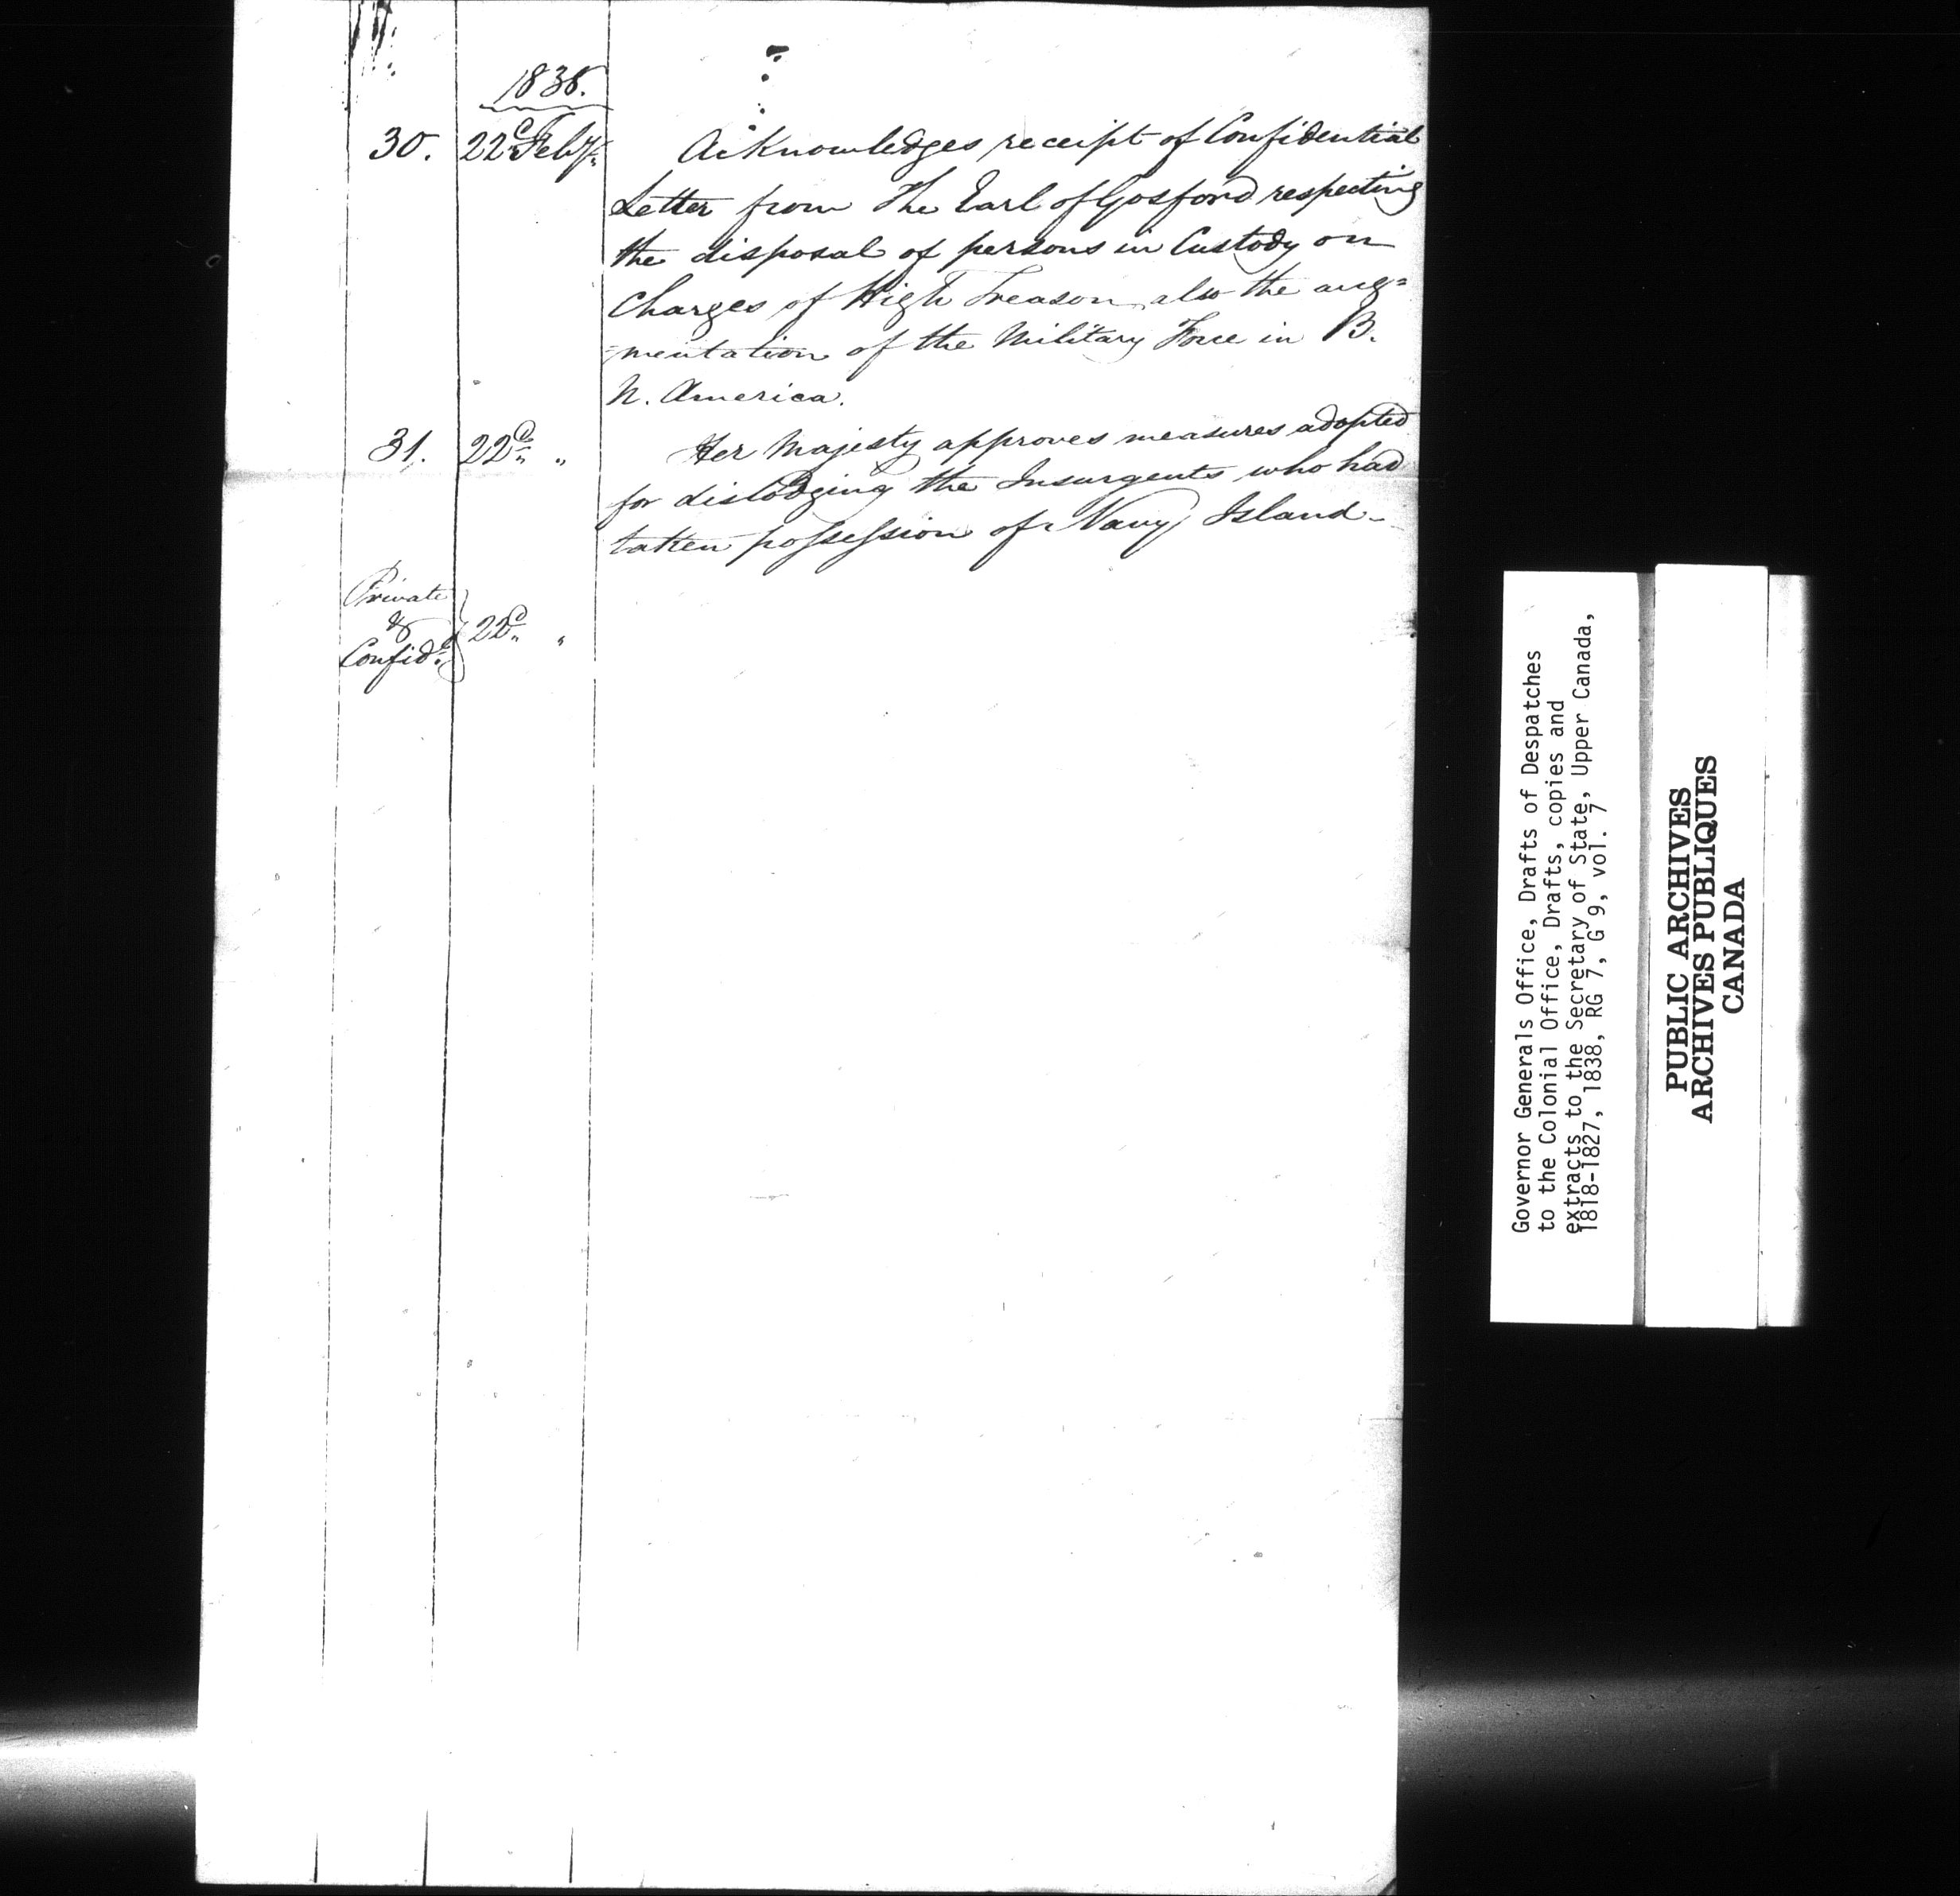 1838.
30. 22d Feby. Acknowledges receipt of Confidential
Letter from The Earl of Gosford respecting
the disposal of persons in Custody on
Charges of High Treason, also the aug=
=mentation of the Military Force in B.
N. America.
31. 22d. " Her Majesty approves measures adopted
for dislodging the Insurgents who had
taken possession of Navy Island.
Private
&
Confidl. } 22d. "
Governor Generals Office, Drafts of Despatches
to the Colonial Office, Drafts, copies and
extracts to the Secretary of State, Upper Canada,
1818-1827, 1838, RG 7, G 9, vol. 7
PUBLIC ARCHIVES
ARCHIVES PUBLIQUES
CANADA